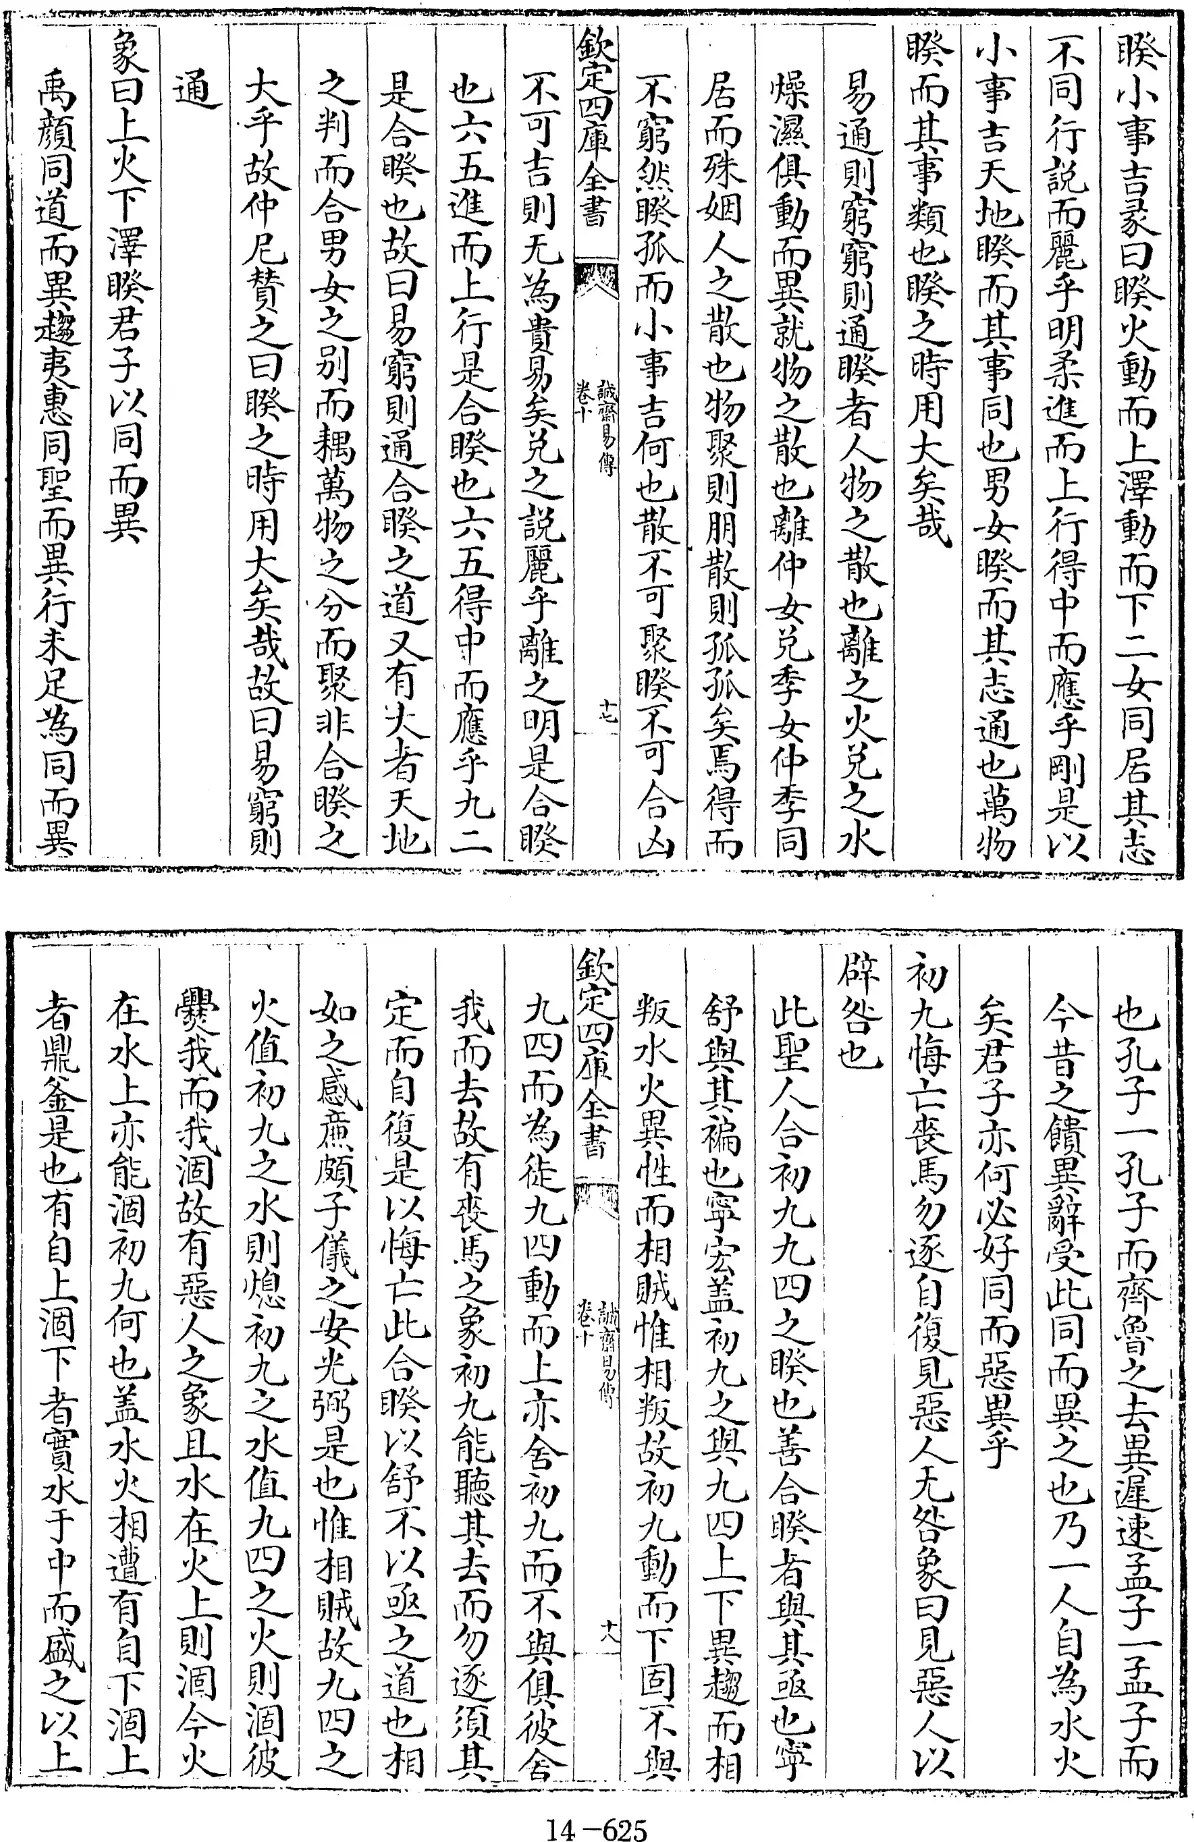 睽小事吉彖曰睽火動而上澤動而下二女同居其志
不同行説而麗乎明柔進而上行得中而應乎剛是以
小事吉天地睽而其事同也男女睽而其志通也萬物
睽而其事類也睽之時用大矣哉
易通則窮窮則通睽者人物之散也離之火兑之水
燥濕俱動而異就物之散也離仲女兑季女仲季同
居而殊姻人之散也物聚則朋散則孤孤矣焉得而
不窮然睽孤而小事吉何也散不可聚睽不可合凶
欽定四庫全書
誠齋易傳
卷十
十七
不可吉則无為貴易矣兑之説麗乎離之明是合睽
也六五進而上行是合睽也六五得中而應乎九二
是合睽也故曰易窮則通合睽之道又有大者天地
之判而合男女之别而耦萬物之分而聚非合睽之
大乎故仲尼賛之曰睽之時用大矣哉故曰易窮則
通
象曰上火下澤睽君子以同而異
禹顔同道而異趨夷惠同聖而異行未足為同而異
也孔子一孔子而齊魯之去異遲速孟子一孟子而
今昔之饋異辭受此同而異之也乃一人自為水火
矣君子亦何必好同而惡異乎
初九悔亡喪馬勿逐自復見惡人无咎象曰見惡人以
辟咎也
此聖人合初九九四之睽也善合睽者與其亟也寧
舒與其褊也寧宏盖初九之與九四上下異趨而相
叛水火異性而相賊惟相叛故初九動而下固不與
欽定四庫全書
誠齋易傳
卷十
十八
九四而為徒九四動而上亦舍初九而不與俱彼舍
我而去故有喪馬之象初九能聽其去而勿逐須其
定而自復是以悔亡此合睽以舒不以亟之道也相
如之感廉頗子儀之安光弼是也惟相賊故九四之
火值初九之水則熄初九之水值九四之火則涸彼
爨我而我涸故有惡人之象且水在火上則涸今火
在水上亦能涸初九何也盖水火相遭有自下涸上
者鼎釜是也有自上涸下者實水于中而盛之以上
14-625